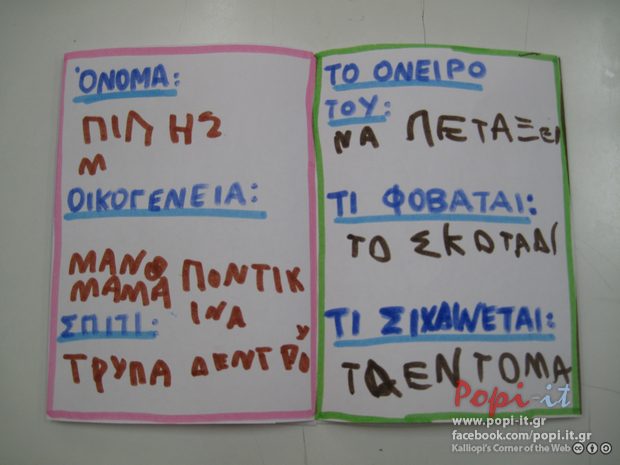 ΌΝΟΜΑ:
ΠΙΠΗΣ
Μ
ΟΙΚΟΓΕΝΕΙΑ:
ΜΑΝΟ ΠΟΝΤΙΚ
ΜΑΜΑ ΙΝΑ
ΣΠΙΤΙ:
ΤΡΥΠΑ ΔΕΝΤΡΟΥ
ΤΟ ΟΝΕΙΡΟ
ΤΟΥ:
ΝΑ ΠΕΤΑΞΕΙ
ΤΙ ΦΟΒΑΤΑΙ:
ΤΟ ΣΚΟΤΑΔΙ
ΤΙ ΣΙΧΑΙΝΕΤΑΙ:
ΤΑ ΕΝΤΟΜΑ
Popi-it
www.popi-it.gr
facebook.com/popi.it.gr
Kalliopi's Corner of the Web